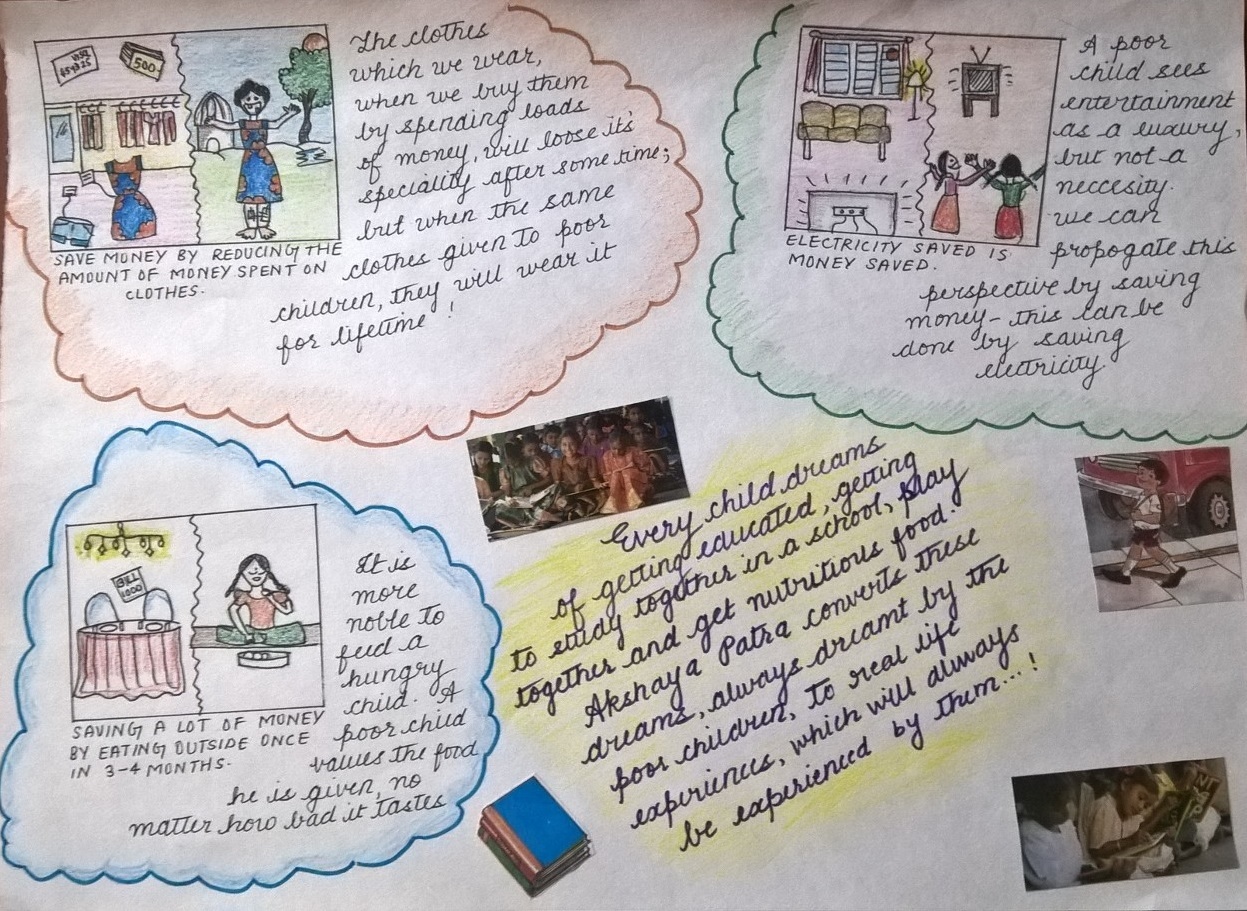 VISA
$543.25
500
The clothes
which we wear,
when we buy them
by spending loads
of money, will loose it's
speciality after some time;
but when the same
clothes given to poor
children, they will wear it
for lifetime !
SAVE MONEY BY REDUCING THE
AMOUNT OF MONEY SPENT ON
CLOTHES.
A poor
child sees
entertainment
as a luxury,
but not a
neccesity.
we can
propogate this
perspective by saving
money- this can be
done by saving
electricity.
ELECTRICITY SAVED IS
MONEY SAVED.
BILL
1000
It is
more
noble to
feed a
hungry
child. A
poor child
values the food
he is given, no
matter how bad it tastes
SAVING A LOT OF MONEY
BY EATING OUTSIDE ONCE
IN 3-4 MONTHS.
Every child dreams
of getting educated, getting
to study together in a school, play
together and get nutritious food.
Akshaya Patra converts these
dreams, always dreamt by the
poor children, to real life
experiences, which will always
be experienced by them...!